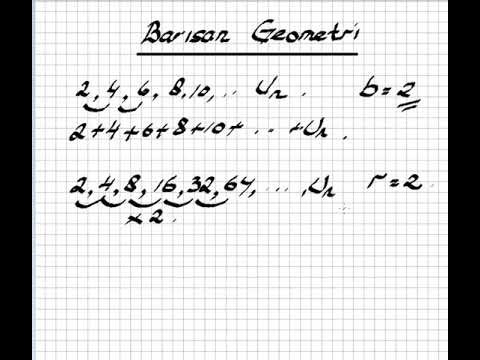 Barisan Geometri
2, 4, 6, 8, 10, ... Un. b = 2
2+4+6+8+10+ ... +Un.
2, 4, 8, 16, 32, 64, ..., Un r = 2.
x 2.